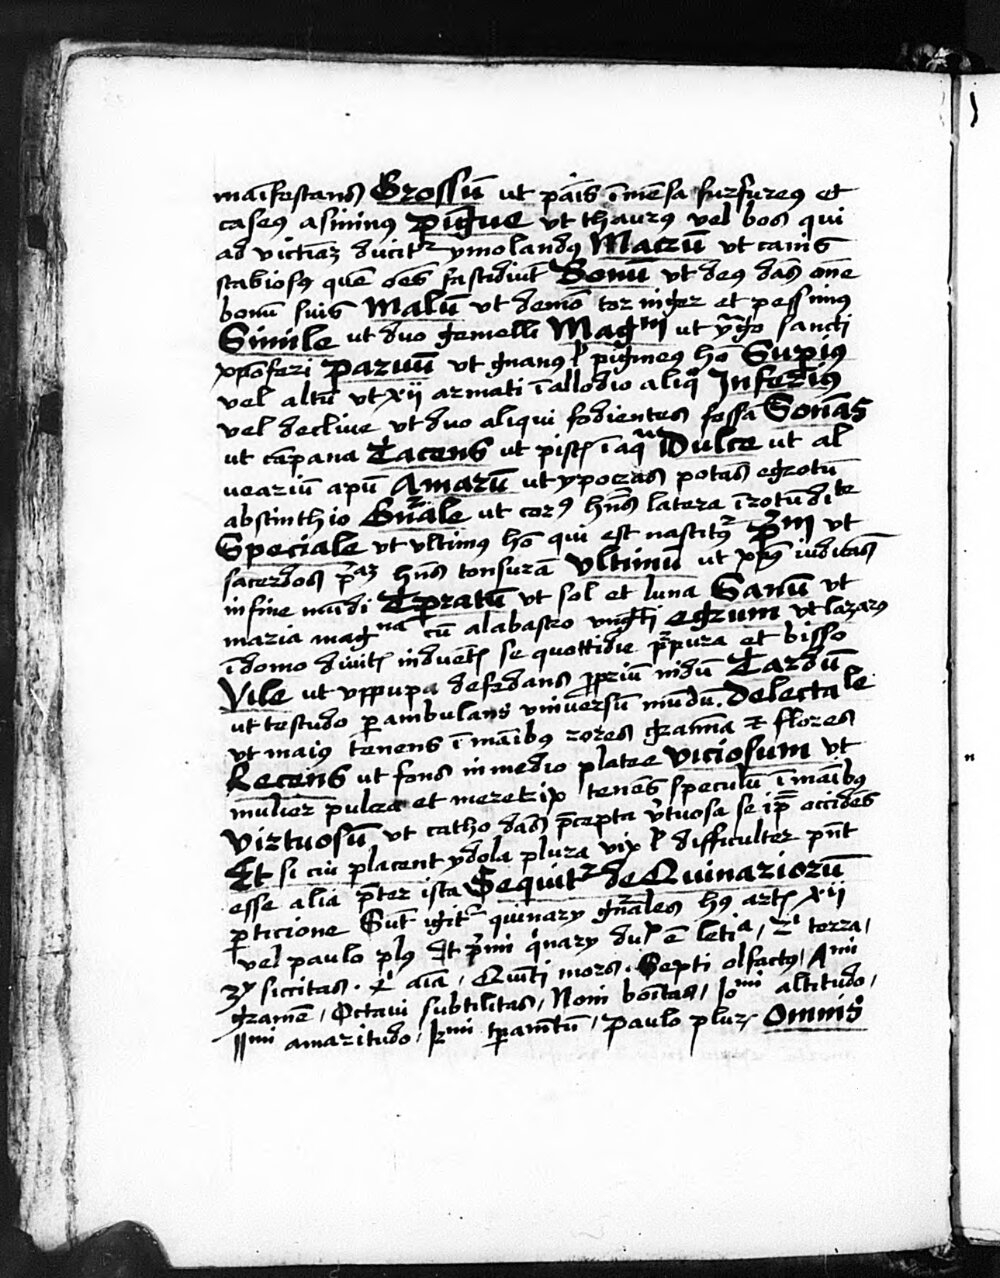 maīfestans Grossū ut pāis īmēsa furfureꝰ et
caseꝰ asininꝰ pīgue ut thaurꝰ vel bos qui
ad victīaʒ ducitr ymolandꝰ Macrū ut canis
scabiosꝰ quē oēs fastidiūt Bonū ut deꝰ dās om̄e
bonū suis Malū ut demō tor niger et pessimꝰ
Simile ut duo gemelli Magm ut ỹgo sancti
xpōferi paruū ut gnanꝰ l pigmeꝰ hō Supiꝰ
vel altū ut xii armati ī allodio aliq̄ Inferiꝰ
vel decliue ut duo aliqui fodientes fossa Sonās
ut cāpana Tacens ut piscꝭ ī aqa Dulce ut al
uearium apū Amarū ut ypocras potas egrotū
absinthio Gn̄ale ut corꝰ hn̄s latera īrotūditte
Speciale ut ultimꝰ hō qui est nascitꝰ pm ut
sacerdos pāʒ hn̄s tonsurā Ultimū ut xpꝰ iudicās
in fine mūdi Tpratū ut sol et luna Sanū ut
maria magna cū alabastro vngēti egrum ut lazarꝰ
ī domo diuitꝭ induētꝭ se quottidie ppura et bisso
Vile ut vppupa defedans ꝓpriū nidū Tardū
ut testudo pambulans vniuersū mūdū. Delectale
ut maiꝰ tenens ī māibꝰ rores gramīa et flores
Recens ut fons in medio platee viciosum ut
mulier pulcra et meretrix tenens speculū ī māibꝰ
virtuosū ut catho dās pcepta vtuosa se ip̄ occidēs
Et si cui placent ydola plura vix l difficulter pn̄t
esse alia pter ista Sequitr de Quinariorū
pticione Sūt igitr quinarӱ gn̄ales hꝰ artꝭ xii
vel paulo plꝰ Et pmi qnarӱ duꝭ ē letia, 2i terra,
3ӱ siccitas. 4i aīa, Quīti mors. Septi olfactꝰ, Ami
gramē, Octaui subtilitas, Noni boītas, Iomi altitudo,
IImi amaritudo, Izmi tpramētū, Paulo plur Omnis